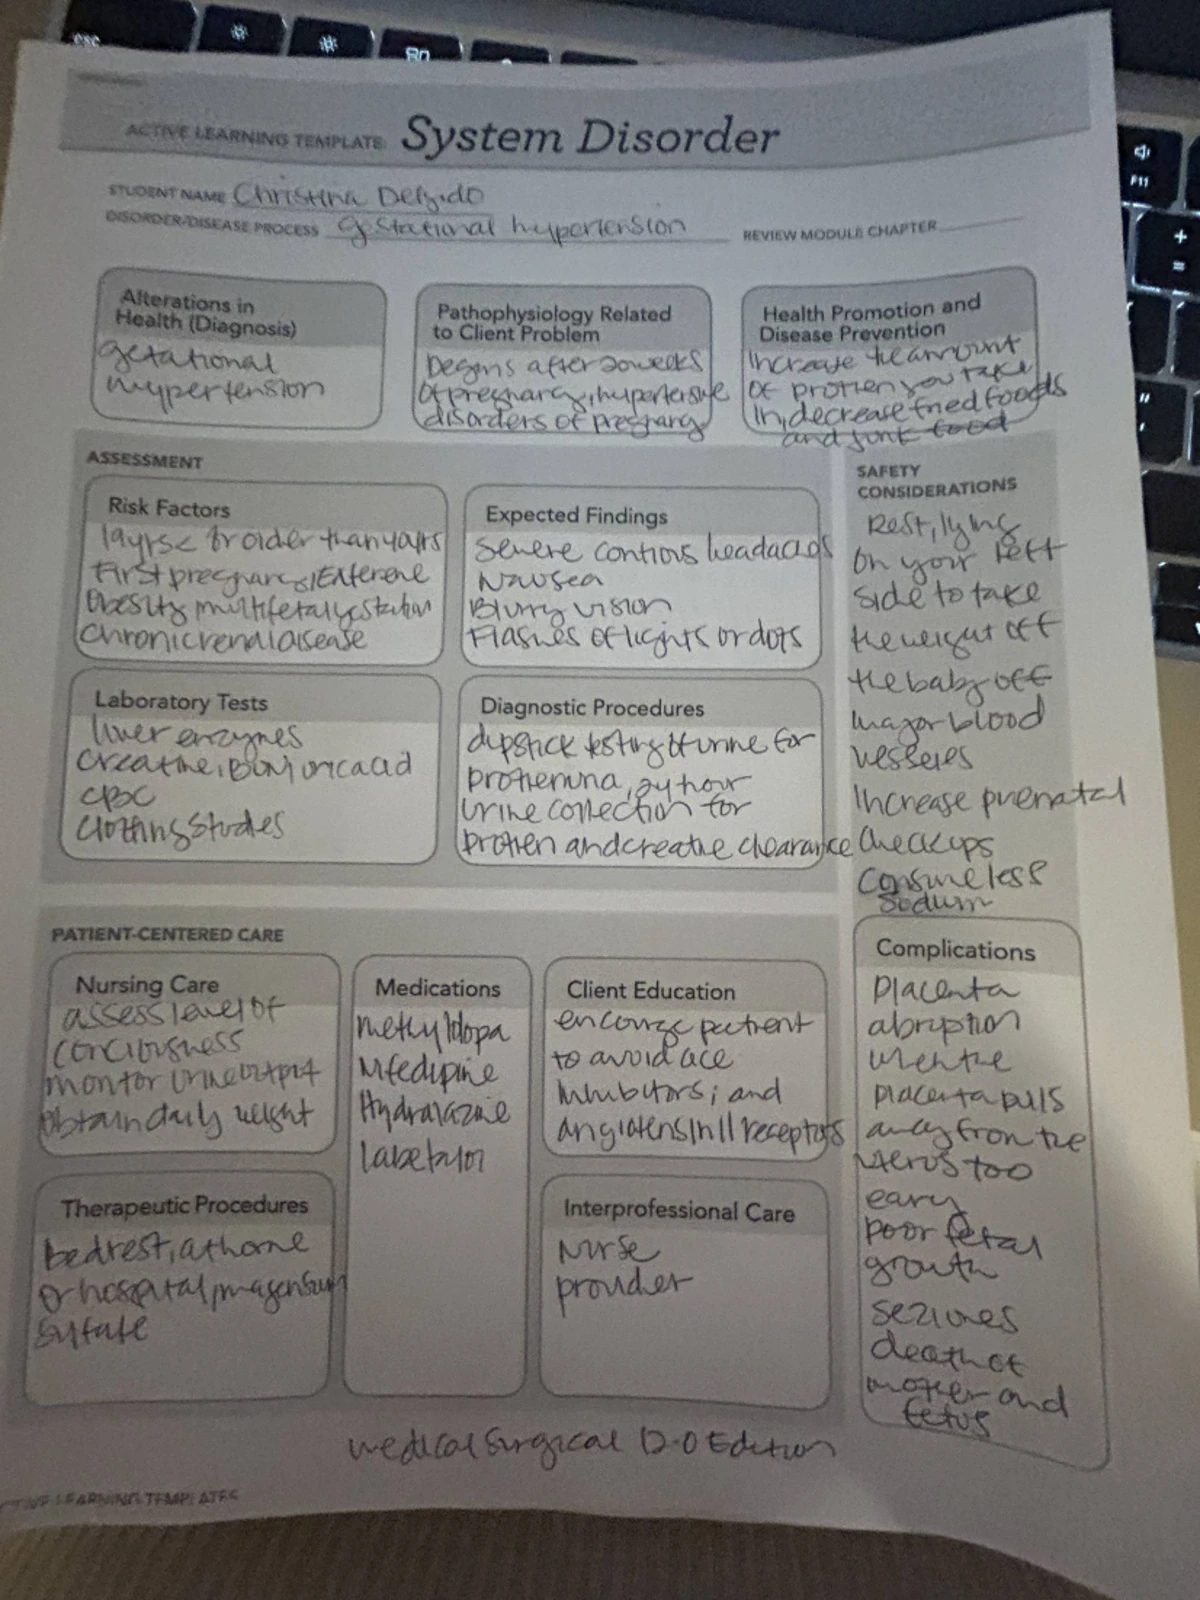 esc
80
F11
+
=
ACTIVE LEARNING TEMPLATE: System Disorder
STUDENT NAME Christina Delgado
DISORDER/DISEASE PROCESS gestational hypertension REVIEW MODULE CHAPTER
Alterations in
Health (Diagnosis)
getational
hypertension
Pathophysiology Related
to Client Problem
Begins after 20 weeks
of pregnancy, hypertensive
disorders of pregnancy
Health Promotion and
Disease Prevention
Increase the amount
of protien you take
in, decrease fried foods
and junk food
ASSESSMENT
Risk Factors
or older than
First pregnancy, Extreme
Obesity multifetal gestation
Chronic renal disease
Expected Findings
Severe headaches
Nausea
Blurry vision
Flashes of lights or dots
Laboratory Tests
liver enzymes
Creatine, BUN, uric acid
CBC
Clotting studies
Diagnostic Procedures
dipstick testing of urine for
24 hour
urine collection for
protien and creatine clearance
SAFETY
CONSIDERATIONS
Rest, lying
on your left
side to take
the weight off
the baby off
major blood
Increase prenatal
checkups
consume less
sodium
PATIENT-CENTERED CARE
Nursing Care
assess level of
conciousness
monitor urine output
obtain daily weight
Medications
methyldopa
Nifedipine
Hydralazine
labetalol
Client Education
patient
to avoid ace
inhibitors; and
angiotensin II receptors
Therapeutic Procedures
bedrest, at home
or hospital, magensium
sulfate
Interprofessional Care
Nurse
provider
Complications
placenta
abruption
when the
placenta pulls
away from the
uterus too
eary
poor fetal
growth
death of
mother and
fetus
medical Surgical 12.0 Edition
ACTIVE LEARNING TEMPLATES